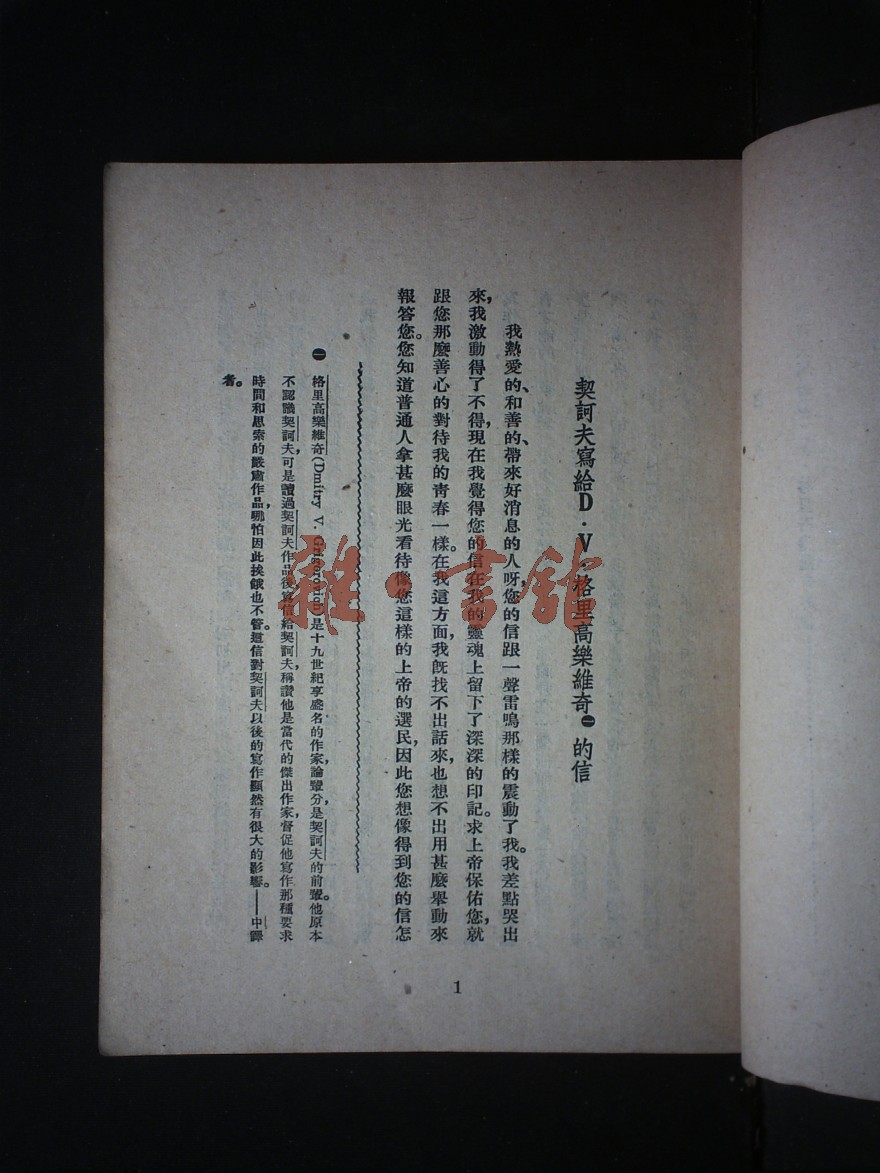 契訶夫寫給D·V·格里高樂維奇㊀的信
我熱愛的、和善的、帶來好消息的人呀，您的信跟一聲雷鳴那樣的震動了我。我差點哭出
來，我激動得了不得，現在我覺得您的信在我的靈魂上留下了深深的印記。求上帝保佑您，就
跟您那麼善心的對待我的青春一樣。在我這方面，我既找不出話來，也想不出用甚麼舉動來
報答您。您知道普通人拿甚麼眼光看待像您這樣的上帝的選民，因此您想像得到您的信怎
㊀ 格里高樂維奇(Dmitry V. Grigorovich)是十九世紀享盛名的作家，論輩分，是契訶夫的前輩。他原本
不認識契訶夫，可是讀過契訶夫作品後，寫信給契訶夫，稱讚他是當代的傑出作家，督促他寫作那種要求
時間和思索的嚴肅作品，哪怕因此挨餓也不管。這信對契訶夫以後的寫作顯然有很大的影響。——中譯
者。
1
雜·書館